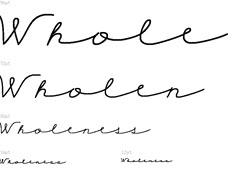 Whole
72pt
Wholen
Wholeness
Wholeness
12pt
Wholeness